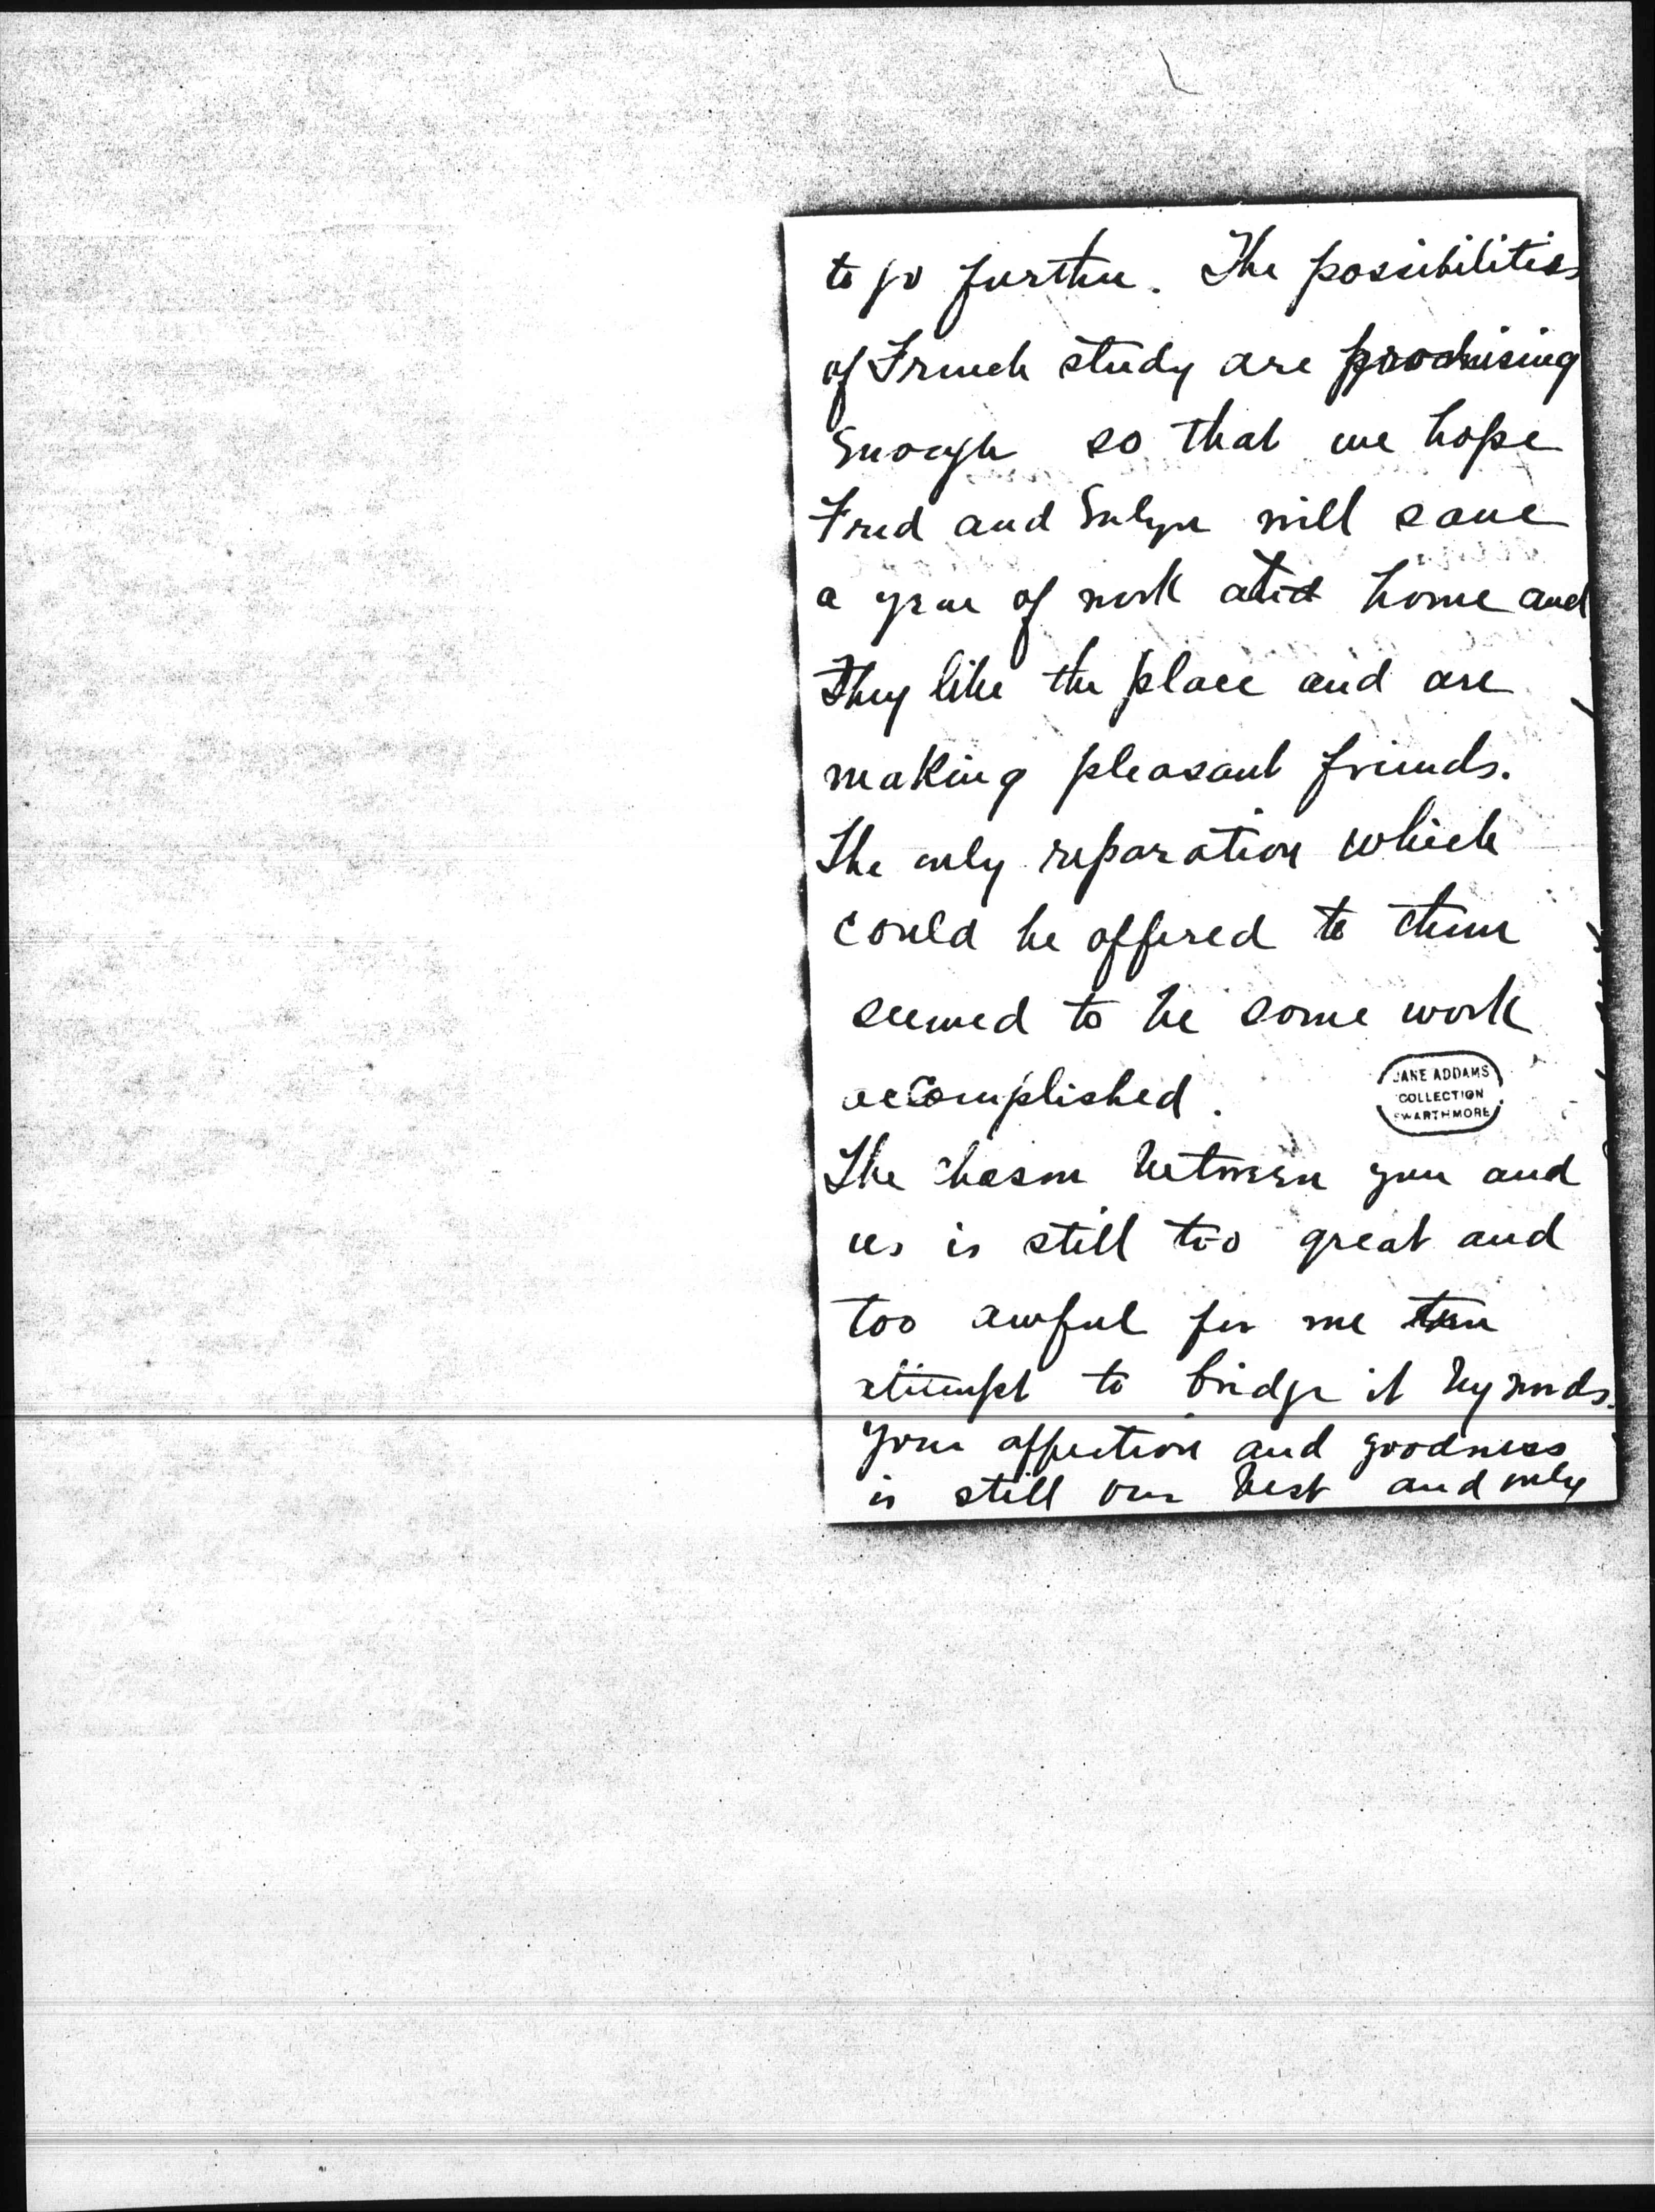 to go further. The possibilities
of French study are promising
enough so that we hope
Fred and Evelyn will save
a year of work at home and
they like the place and are
making pleasant friends.
The only reparation which
could be offered to them
seemed to be some work
accomplished.
JANE ADDAMS
COLLECTION
SWARTHMORE
The chasm between you and
us is still too great and
too awful for me
attempt to bridge it by words.
Your affection and goodness
is still our best and only